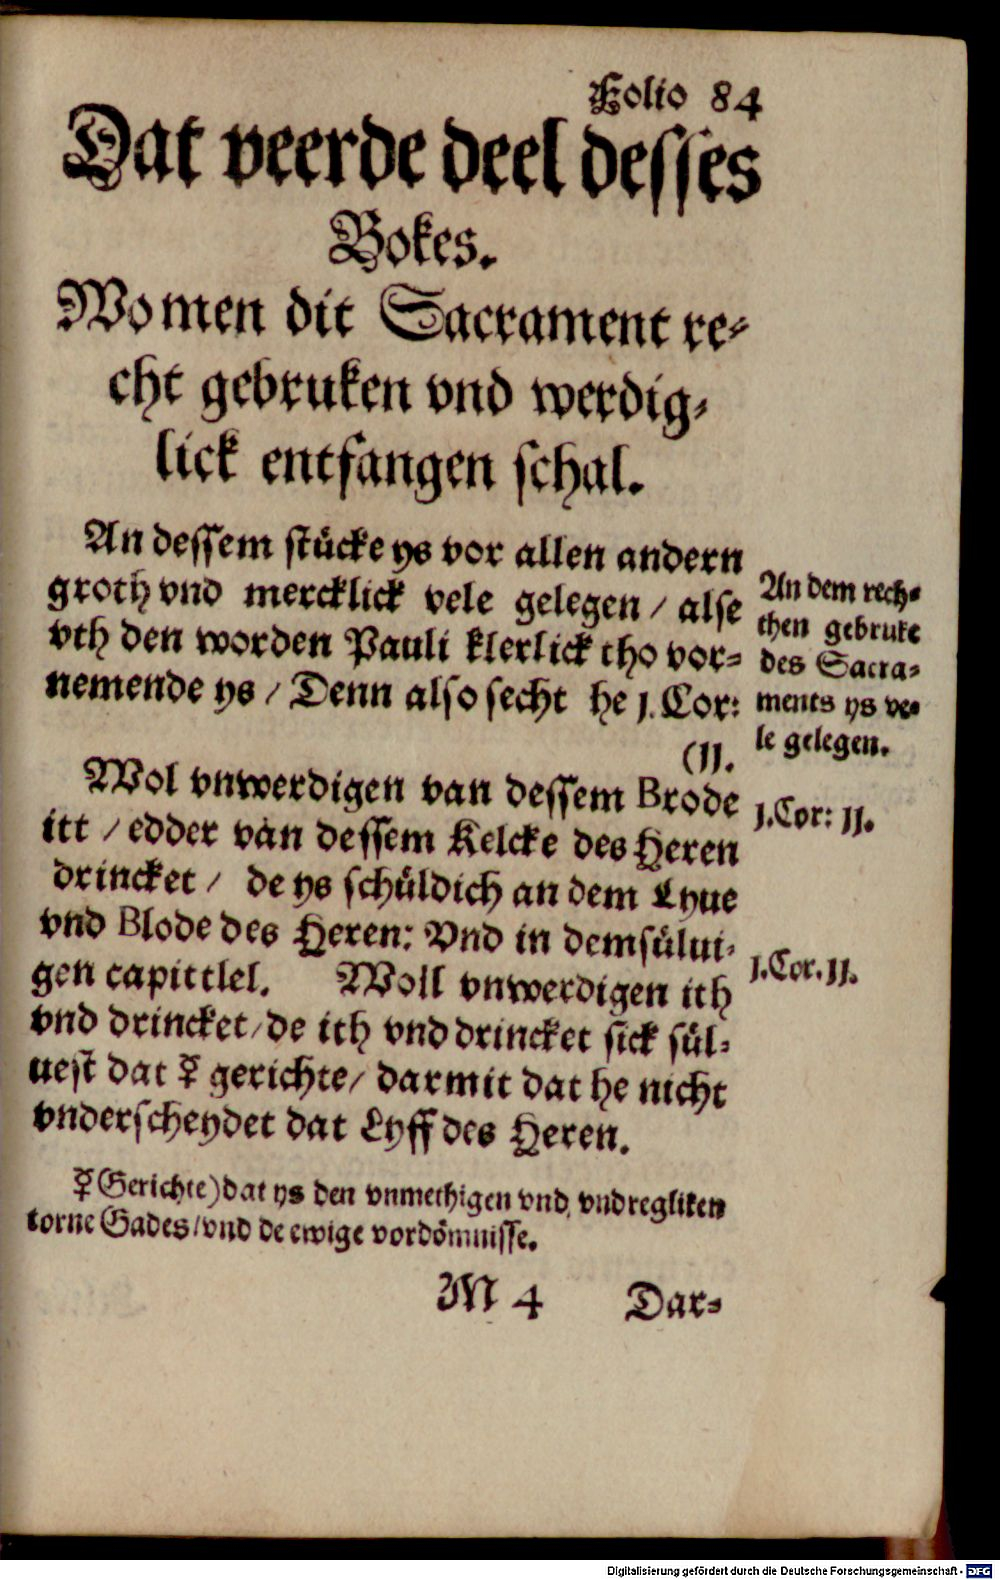 Folio 84
Dat veerde deel desses
Bokes.
Wo men dit Sacrament re⸗
cht gebruken vnd werdig⸗
lick entfangen schal.
An dessem stücke ys vor allen andern
groth vnd mercklick vele gelegen / alse
vth den worden Pauli klerlick tho vor⸗
nemende ys / Denn also secht he 1. Cor:
(11.
An dem rech⸗
then gebruke
des Sacra⸗
ments ys ve⸗
le gelegen.
Wol vnwerdigen van dessem Brode
itt / edder van dessem Kelcke des Heren
drincket / de ys schüldich an dem Lyue
vnd Blode des Heren: Vnd in demsülui⸗
gen capittlel. Woll vnwerdigen ith
vnd drincket / de ith vnd drincket sick sül⸗
uest dat ☿ gerichte / darmit dat he nicht
vnderscheydet dat Lyff des Heren.
1. Cor: 11.
1. Cor. 11.
☿ Gerichte) dat ys den vnmethigen vnd vndregliken
torne Gades / vnd de ewige vordömnisse.
M 4 Dar⸗
Digitalisierung gefördert durch die Deutsche Forschungsgemeinschaft - DFG